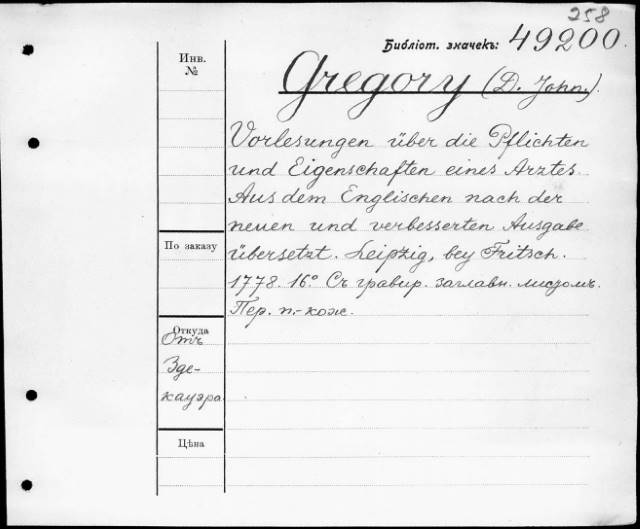 258
Библіот. значекъ: 49200.
Инв.
№
Gregory (D. John.).
Vorlesungen über die Pflichten
und Eigenschaften eines Arztes.
Aus dem Englischen nach der
neuen und verbesserten Ausgabe
übersetzt. Leipzig, bey Fritsch.
1778. 16° Съ гравир. заглавн. листомъ.
Пер. п.-кож.
По заказу
Откуда
Отъ
Зде-
кауэра
Цѣна